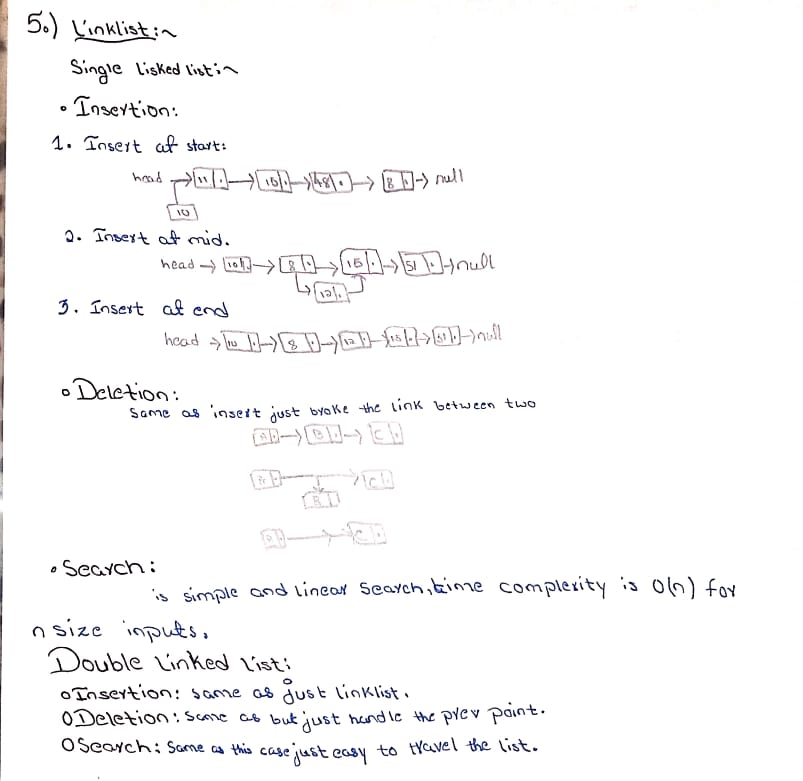 5.) Linklist:~
Single Lisked list:~
• Insertion:
1. Insert at start:
head → 11 → 15 → 48 → 8 → null
10
2. Insert at mid.
head → 10 → 8 → 15 → 51 → null
12
3. Insert at end
head → 10 → 8 → 12 → 15 → 51 → null
o Deletion:
Same as insert just broke the link between two
A → B → C
C
B
C
• Search:
is simple and linear search, time complexity is O(n) for
n size inputs,
Double Linked list:
o Insertion: same as just linklist.
o Deletion: same as but just handle the prev point.
o Search: Same as this case just easy to travel the list.